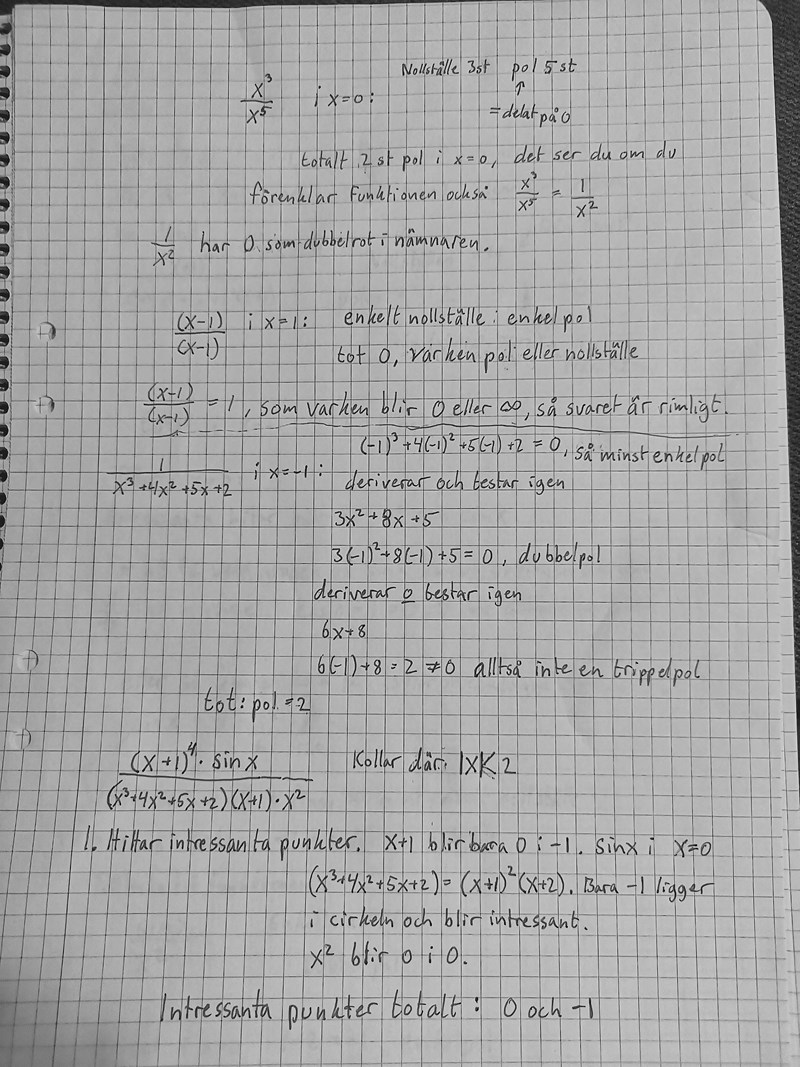 Nollställe 3st pol 5 st
x³/x⁵ i x=0: ↑
=delat på 0
totalt 2 st pol i x=0, det ser du om du
förenklar funktionen också x³/x⁵ = 1/x²
1/x² har 0 som dubbelrot i nämnaren.
(x-1)/(x-1) i x=1: enkelt nollställe i enkel pol
tot 0, varken pol eller nollställe
(x-1)/(x-1) = 1, som varken blir 0 eller ∞, så svaret är rimligt.
(-1)³+4(-1)²+5(-1)+2=0, så minst enkelpol
1/(x³+4x²+5x+2) i x=-1: deriverar och testar igen
3x²+8x+5
3(-1)²+8(-1)+5=0, dubbelpol
deriverar o testar igen
6x+8
6(-1)+8=2≠0 alltså inte en trippelpol
tot: pol=2
(x+1)⁴·sinx/(x³+4x²+5x+2)(x+1)·x² Kollar där: |x|<2
1. Hittar intressanta punkter. x+1 blir bara 0 i -1. sinx i x=0
(x³+4x²+5x+2)=(x+1)²(x+2). Bara -1 ligger
i cirkeln och blir intressant.
x² blir 0 i 0.
Intressanta punkter totalt: 0 och -1